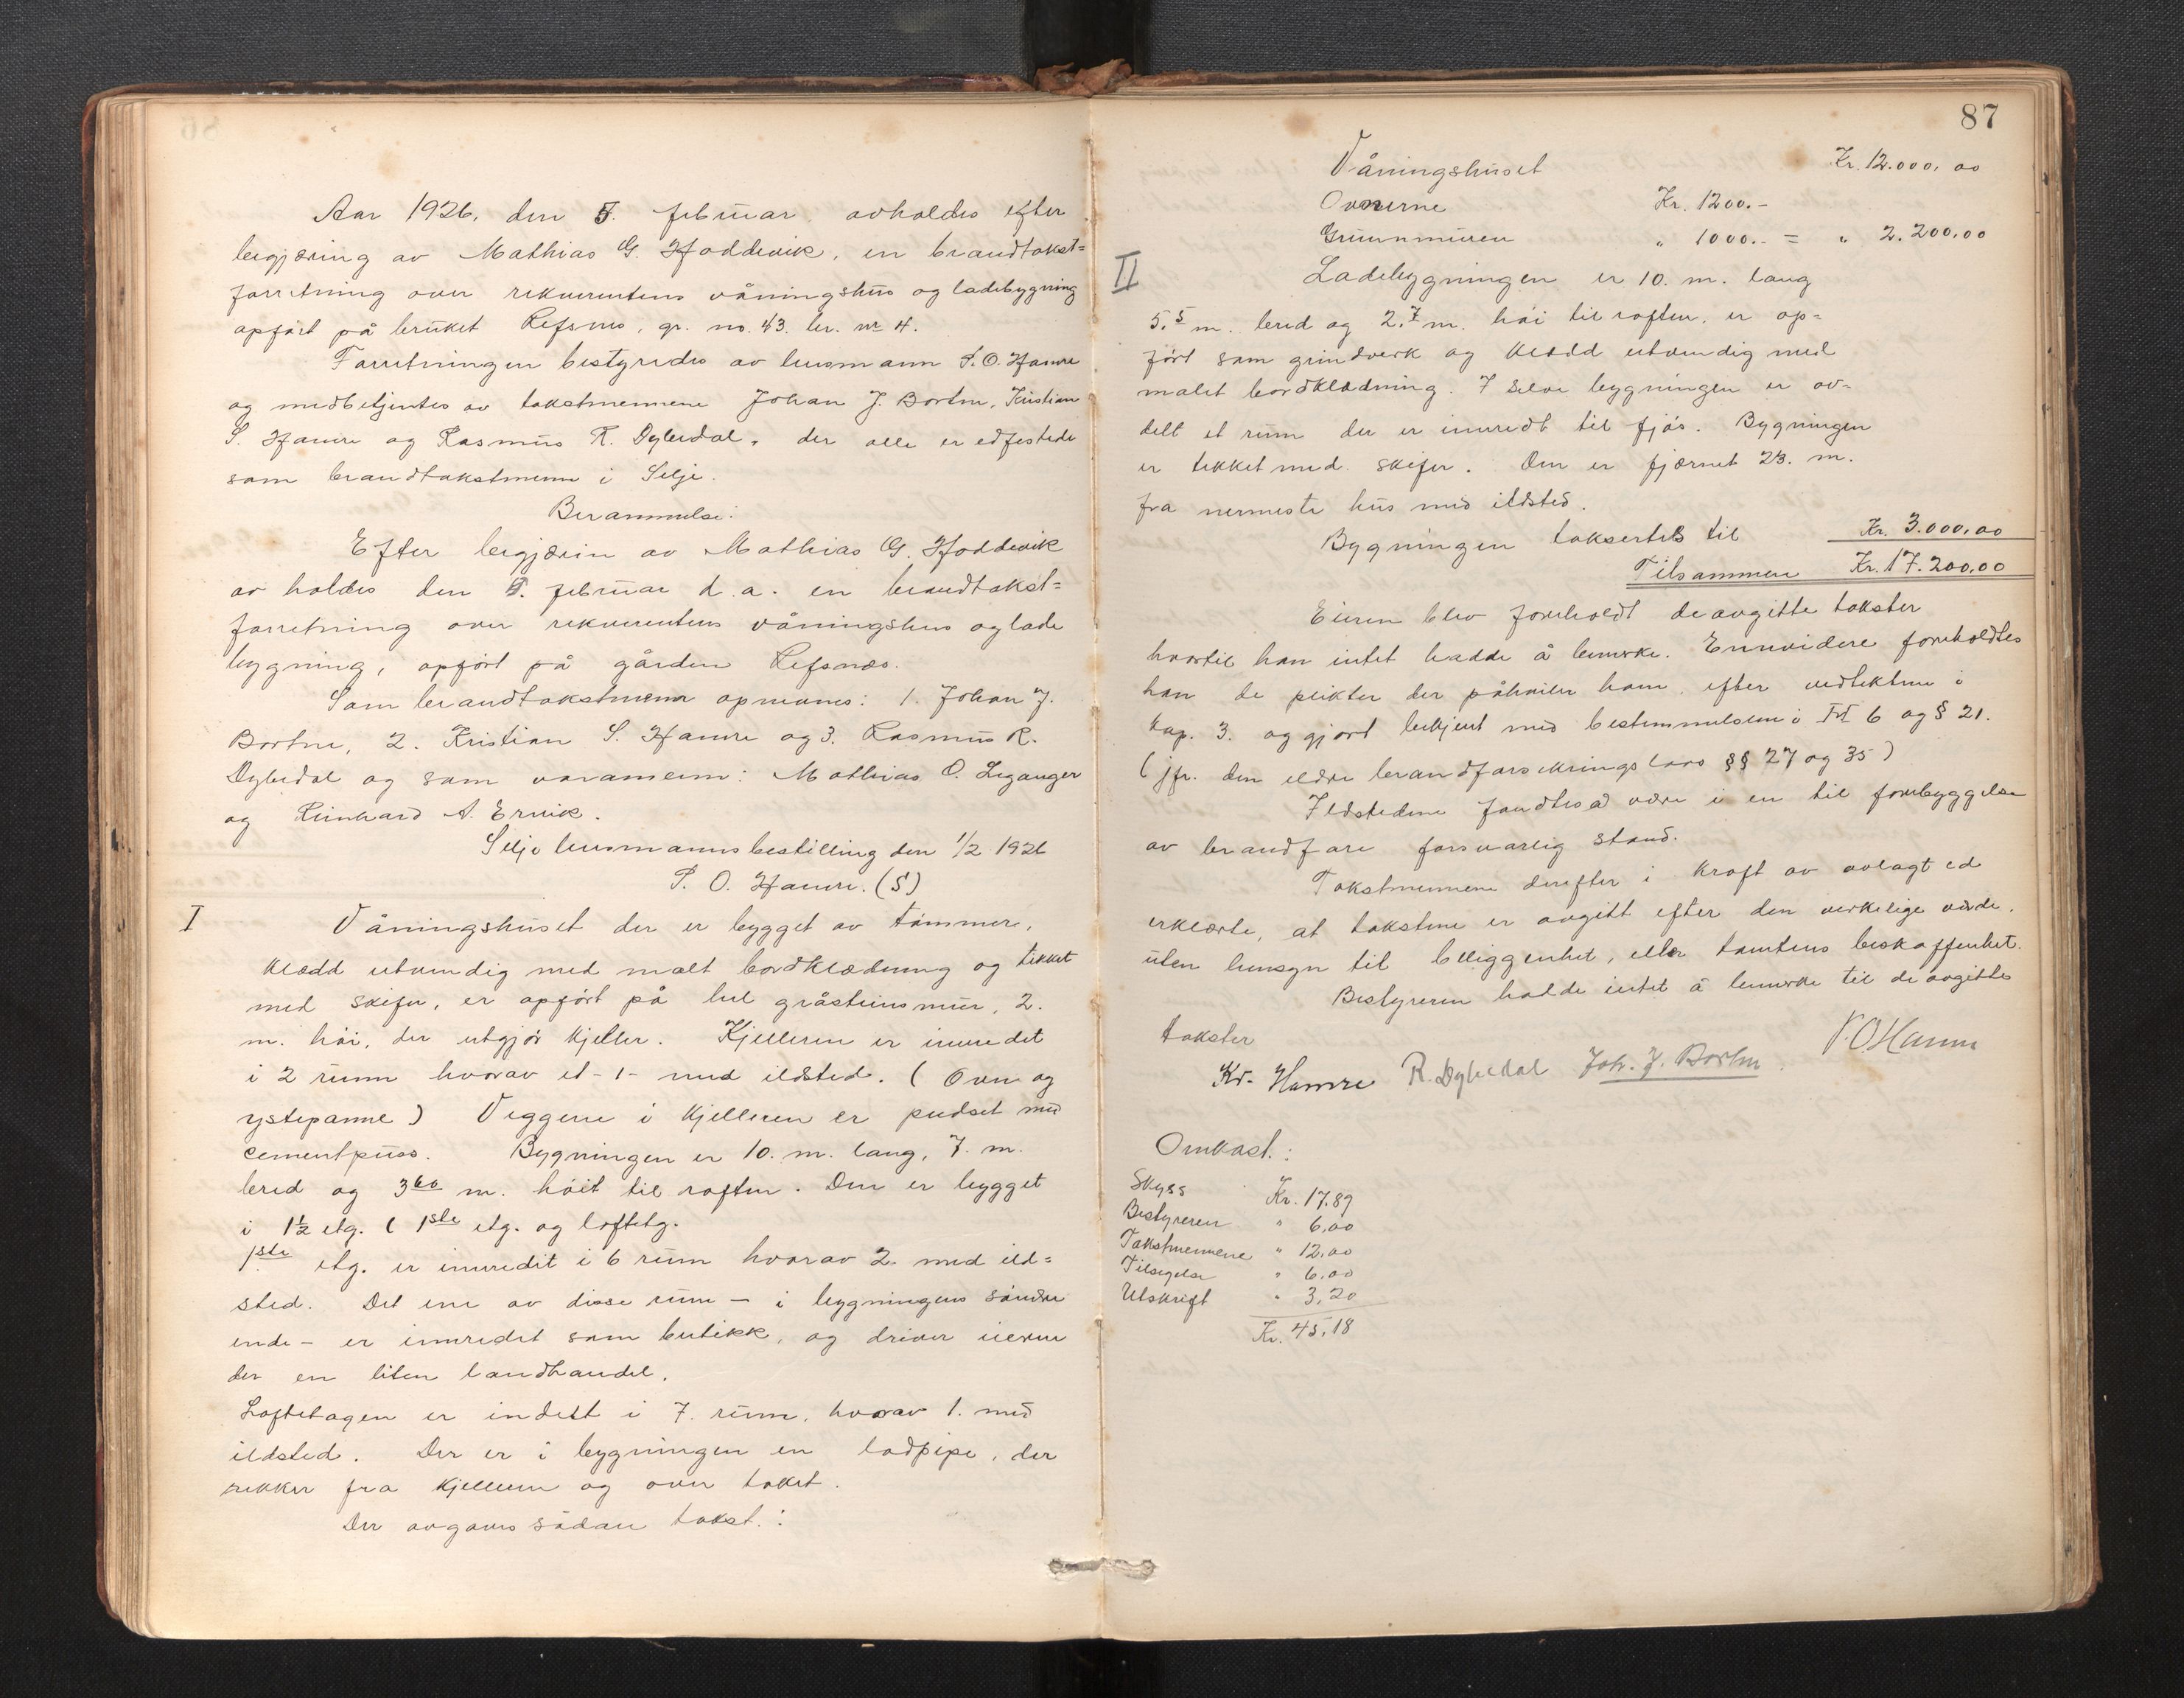 Aar 1926, den 5. februar, avholdes efter
begjæring av Mathias G. Hoddevik, en brandtakst=
forretning over rekvirentens våningshus og ladebygning
opført på bruket Refsnes, gr. no. 43. br. nr 4.
Forretningen bestyredes av lensmann P. O. Hamre
og medbetjentes av takstmennene Johan J. Bortne, Kristian
S. Hamre og Rasmus R. Dybedal, der alle er edfestede
som brandtakstmenn i Selje.
Berammelse:
Efter begjærin av Mathias G. Hoddevik
av holdes den 5. februar d. a. en brandtakst=
forretning over rekvirentens våningshus og lade
bygning, opført på gården Refsnæs.
Som brandtakstmenn opnevnes: 1. Johan J.
Bortne, 2. Kristian S. Hamre og 3. Rasmus R.
Dybedal og som varamenn: Mathias O. Leganger
og Reinhard A. Ervik.
Selje lensmannsbestilling den 1/2 1926
P. O. Hamre. (S)
I Våningshuset der er bygget av tømmer,
klædd utvendig med malt bordklædning og tekket
med skifer, er opført på hel gråsteinsmur, 2.
m. høi, der utgjør kjeller. Kjelleren er innredet
i 2 rumm hvorav et -1- med ildsted. (Ovn og
ystepanne) Veggene i kjelleren er pudset med
cementpuss. Bygningen er 10. m. lang, 7. m.
bred og 3.60 m. høit til raften. Den er bygget
i 1½ etg. ( 1ste etg. og loftetg.
1ste etg. er innredit i 6 rum hvorav 2. med ild=
sted. Det ene av disse rum – i bygningens søndre
ende – er innredet som butikk, og driver eieren
der en liten landhandel.
Loftetagen er indelt i 7. rum, hvorav 1. med
ildsted. Der er i bygningen en lodpipe, der
rekker fra kjelleren og over taket.
Der avgaves sådan takst.:
87
Våningshuset Kr. 12.000,00
Ovnerne Kr. 1200.-
Grunnmuren " 1000.- = " 2.200,00
II Ladebygningen er 10. m. lang
5.5 m. bred og 2.7 m. høi til raften, er op=
ført som grindverk og klædd utvendig med
malet bordklædning. I selve bygningen er av=
delt et rum der er innredt til fjøs. Bygningen
er tekket med skifer. Den er fjærnet 23. m.
fra nermeste hus med ildsted.
Bygningen taksertes til Kr. 3.000,00
Tilsammen Kr. 17.200,00
Eieren blev foreholdt de avgitte takster
hvortil han intet hadde å bemerke. Ennvidere foreholdtes
han de plikter der påhviler ham efter vedtektene i
kap. 3. og gjort bekjent med bestemmelsene i 6 og § 21.
(jfr. den eldre brandforsikringslovs §§ 27 og 35)
Ildstedene fandtes å være i en til forebyggelse
av brandfare forsvarlig stand.
Takstmennene derefter i kraft av avlagt ed
erklærte, at takstene er avgitt efter den verkelige verde,
uten hensyn til beliggenhet, eller tomtens beskaffenhet.
Bestyreren hadde intet å bemerke til de avgittes
takster
P.O.Hamre
Kr. Hamre R. Dybedal Joh. J. Bortne
Omkost.:
Skyss Kr. 17.89
Bestyreren " 6,00
Takstmennene " 12,00
Tilsigelse " 6,00
Utskrift " 3,20
Kr. 45,18